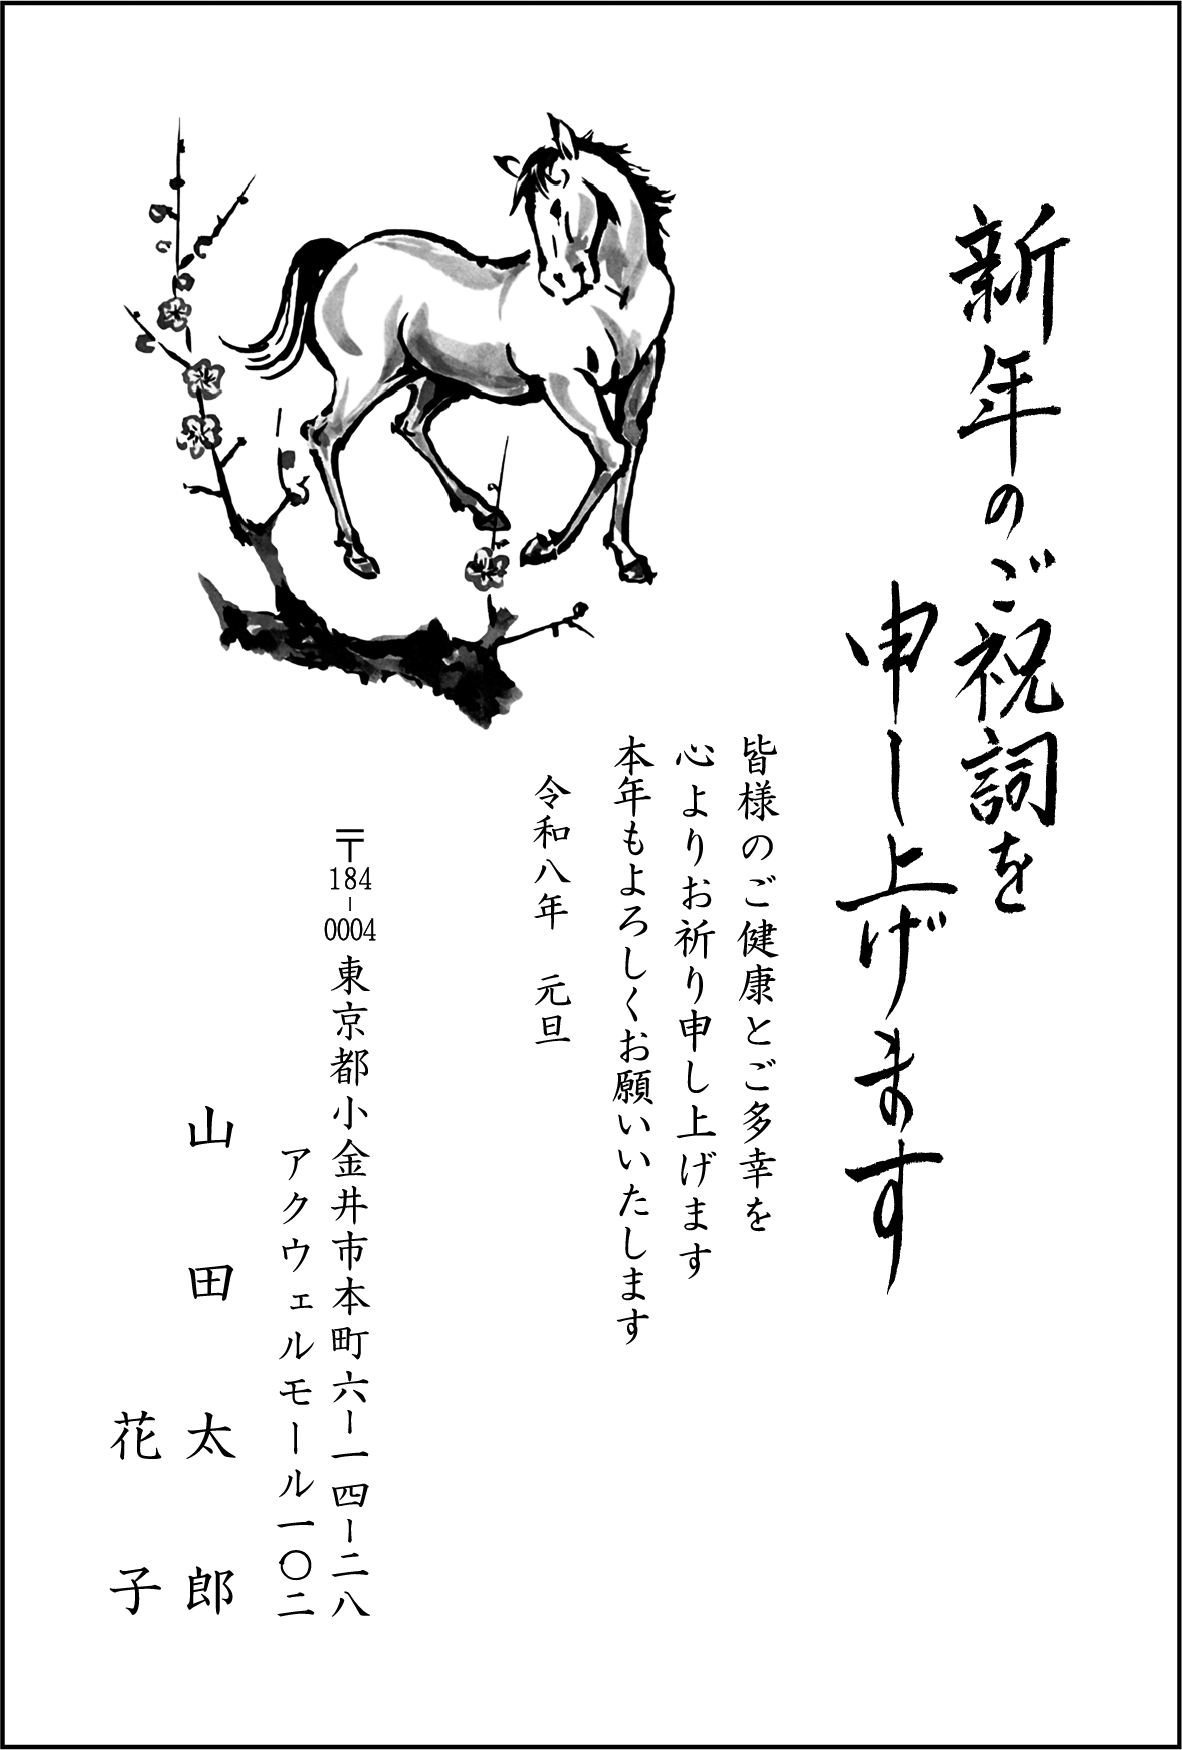 新年のご祝詞を
申し上げます
皆様のご健康とご多幸を
心よりお祈り申し上げます
本年もよろしくお願いいたします
令和八年　元旦
〒184-0004 東京都小金井市本町六ー一四ー二八
アクウェルモール一〇二
山田太郎
花子